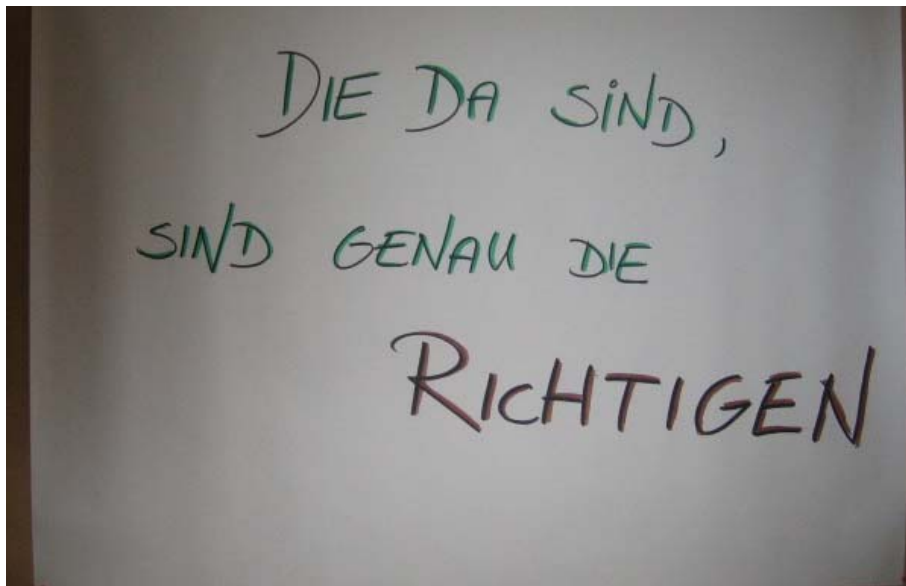 DIE DA SIND,
SIND GENAU DIE
RICHTIGEN